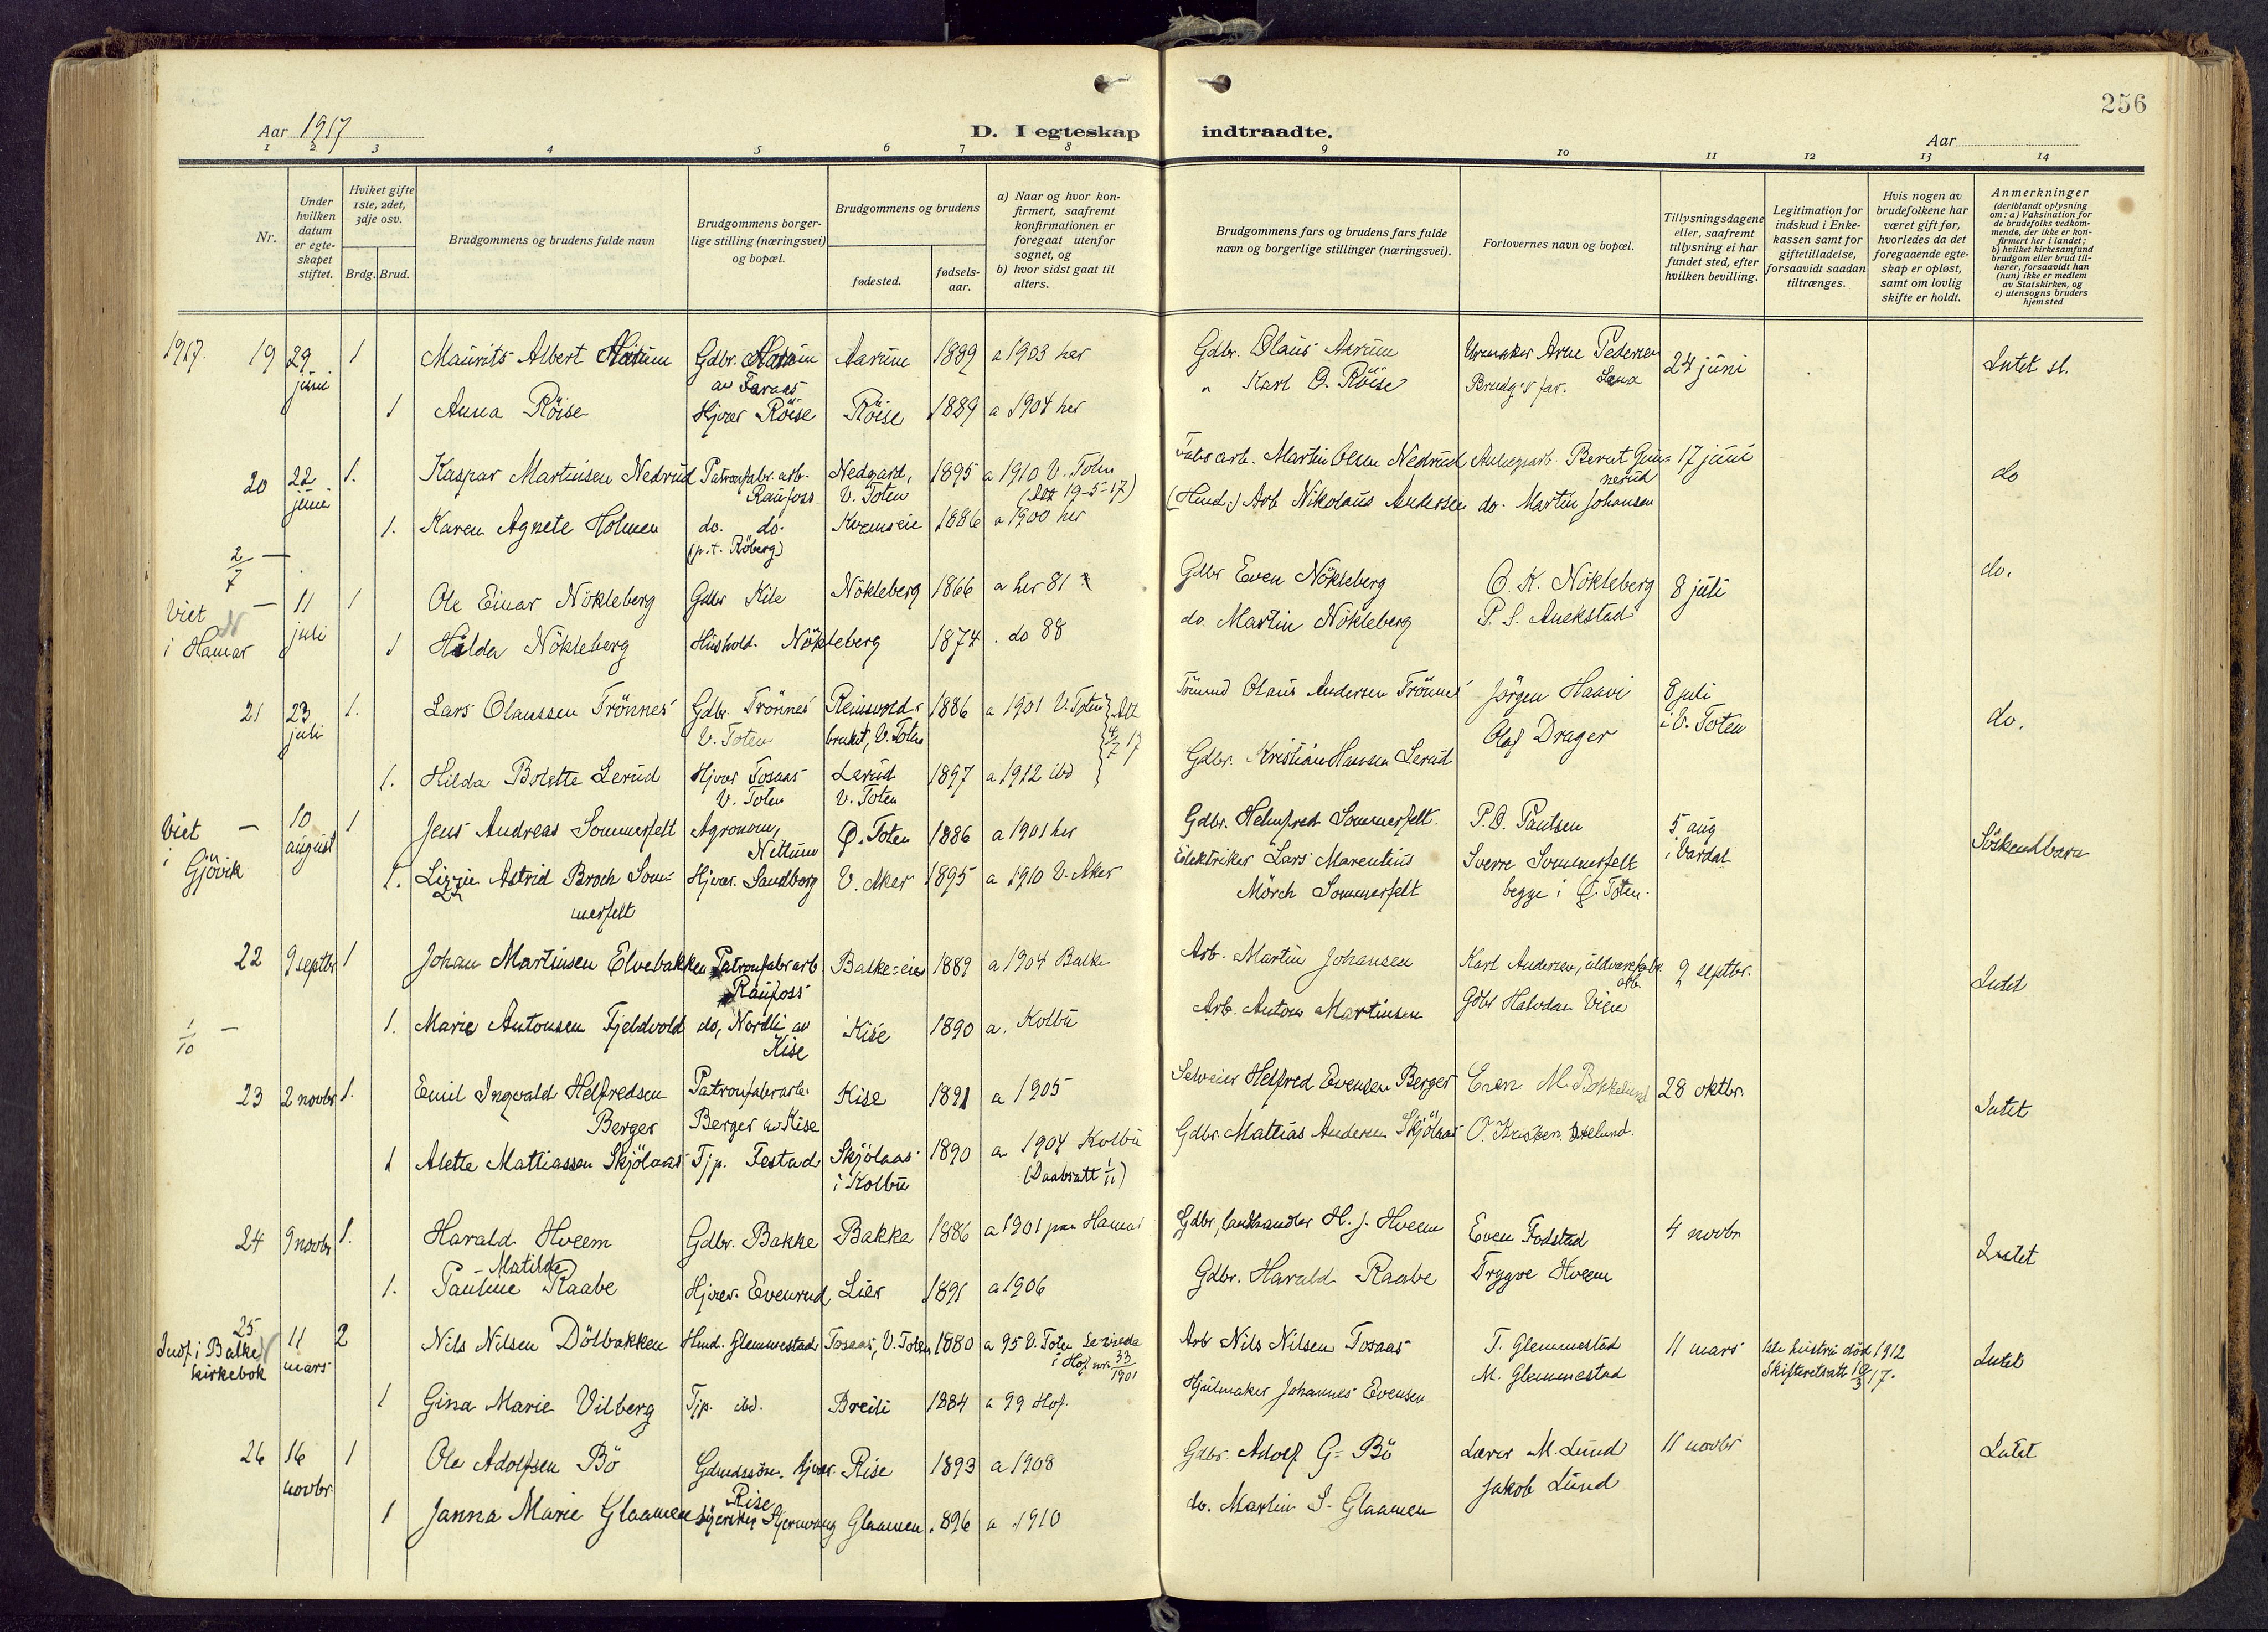 256
Aar 1917
D. I egteskap indtraadte.
Aar
1 2 3 4 5 6 7 8 9 10 11 12 13 14
Nr.
Under hvilken datum er egteskapet stiftet.
Hviket gifte 1ste, 2det, 3dje osv.
Brdg. Brud.
Brudgommens og brudens fulde navn
Brudgommens borgerlige stilling (næringsvei) og bopæl.
Brudgommens og brudens
fødested.
fødselsaar.
a) Naar og hvor konfirmert, saafremt konfirmationen er foregaat utenfor sognet, og
b) hvor sidst gaat til alters.
Brudgommens fars og brudens fars fulde navn og borgerlige stillinger (næringsvei).
Forlovernes navn og bopæl.
Tillysningsdagene eller, saafremt tillysning ei har fundet sted, efter hvilken bevilling.
Legitimation for indskud i Enkekassen samt for giftetilladelse, forsaavidt saadan tiltrænges.
Hvis nogen av brudefolkene har været gift før, hvorledes da det foregaaende egteskap er opløst, samt om lovlig skifte er holdt.
Anmerkninger (deriblandt oplysning om: a) Vaksination for de brudefolks vedkommende, der ikke er konfirmert her i landet; b) hvilket kirkesamfund brudgom eller brud tilhører, forsaavidt han (hun) ikke er medlem av Statskirken, og c) utensogns bruders hjemsted
1917. 19 29 juni 1 Maurits Albert Gdbr. Aarum 1889 a 1903 her Gdbr. Olaus Aarum Urmaker Arne Pedersen Lena 24 juni Intet sl.
av Faraas
1 Anna Röise Hjvær Röise Röise 1889 a 1904 her " Karl O. Röise Brudg's far.
20 22 juni 1. Kaspar Martinsen Nedrud Patronfabr. arb. Raufoss Nedgard, V. Toten 1895 a 1910 V. Toten (Att 19-5-17) Fabr arb. Martin Olsen Nedrud Anlegsarb. Bernt Gunnerud 17 juni do
1. Karen Agnete Holmen do. do. (p.t. Röberg) Kvemseie 1886 a 1900 her (Hmd:) Arb Nikolaus Andersen do. Martin Johansen
2/7 —
Viet i Hamar — 11 juli 1 Ole Einar Nökleberg Gdbr Kile Nökleberg 1866 a her 81 Gdbr Even Nökleberg O. K. Nökleberg 8 juli do.
1 Hilda Nökleberg Hushold. Nökleberg 1874 . do 88 do. Martin Nökleberg P. S. Anekstad
21 23 juli 1. Lars Olaussen Trönnes Gdbr. Trönnes V. Toten Reinsvoldbruket, V. Toten 1886 a 1901 V. Toten Att 4/7 17 Olaus Andersen Trönnes Jörgen Haavi 8 juli i V. Toten do.
1. Hilda Bolette Lerud Hjvær Tosaas V. Toten Lerud V. Toten 1897 a 1912 ibd Gdbr. Kristian Hansen Lerud Olaf Drager
Viet i Gjövik — 10 august 1 Jens Andreas Sommerfelt Agronom, Nettum Ø. Toten 1886 a 1901 her Gdbr. Helmfred Sommerfelt. P. O. Paulsen 5 aug i Vardal Söskendbarn
1. Lizzie Astrid Broch Sommerfelt Hjvær. Sandborg V. Aker 1895 a 1910 V. Aker Elektriker Lars Marentius Mörch Sommerfelt Sverre Sommerfelt begge i Ø. Toten.
22 9 septbr 1 Johan Martinsen Elvebakken Patronfabr arb Raufoss Balke-eie 1889 a 1904 Balke Arb. Martin Johansen Karl Andersen, uldvarefabr. arb. 2 septbr. Intet
1/10 — 1. Marie Antonsen Fjeldvold do, Nordli av Kise Kise 1890 a. Kolbu Arb. Anton Martinsen Gdbr Halvdan Vien
23 2 novbr 1. Emil Ingvald Helfredsen Berger Patronfabrarb. Berger av Kise Kise 1891 a 1905 Selveier Helfred Evensen Berger Even M. Bokkelund 28 oktbr. Intet
1 Alette Mattiassen Skjölaas Tjp. Festad Skjölaas i Kolbu 1890 a 1904 Kolbu (Daabsatt 1/11) Gdbr. Mattias Andersen Skjölaas O. Kristen.
24 9 novbr 1. Harald Hveem Gdbr. Bakke Bakke 1886 a 1901 paa Hamar Gdbr, landhandler H. J. Hveem Even Fodstad 4 novbr Intet
1. Pauline Matilde Raabe Hjvær. Evenrud Lier 1891 a 1906 Gdbr. Harald Raabe Trygve Hveem
25 Indf. i Balke kirkebok 11 mars 2 Nils Nilsen Dölbakken Hmd. Glemmestad Tosaas, V. Toten 1880 a 95 V. Toten Se viede i Hof nr. 33/1901 Arb Nils Nilsen Tosaas T. Glemmestad 11 mars 1ste hustru död 1912 Skifteretsatt 10/3 17. Intet
1 Gina Marie Vilberg Tjp. ibd. Breili 1884 a 99 Hof. Hjulmaker Johannes Evensen M. Glemmestad
26 16 novbr. 1 Ole Adolfsen Bö Gdmdssön. hjvær. Rise Rise 1893 a 1908 Gdbr. Adolf G. Bö Lærer M. Lund 11 novbr Intet
1 Janna Marie Glaamen Glaamen 1896 a 1910 do. Martin S. Glaamen Jakob Lund